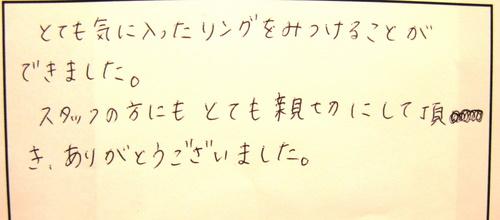 とても気に入ったリングをみつけることが
できました。
スタッフの方にもとても親切にして頂
き、ありがとうございました。